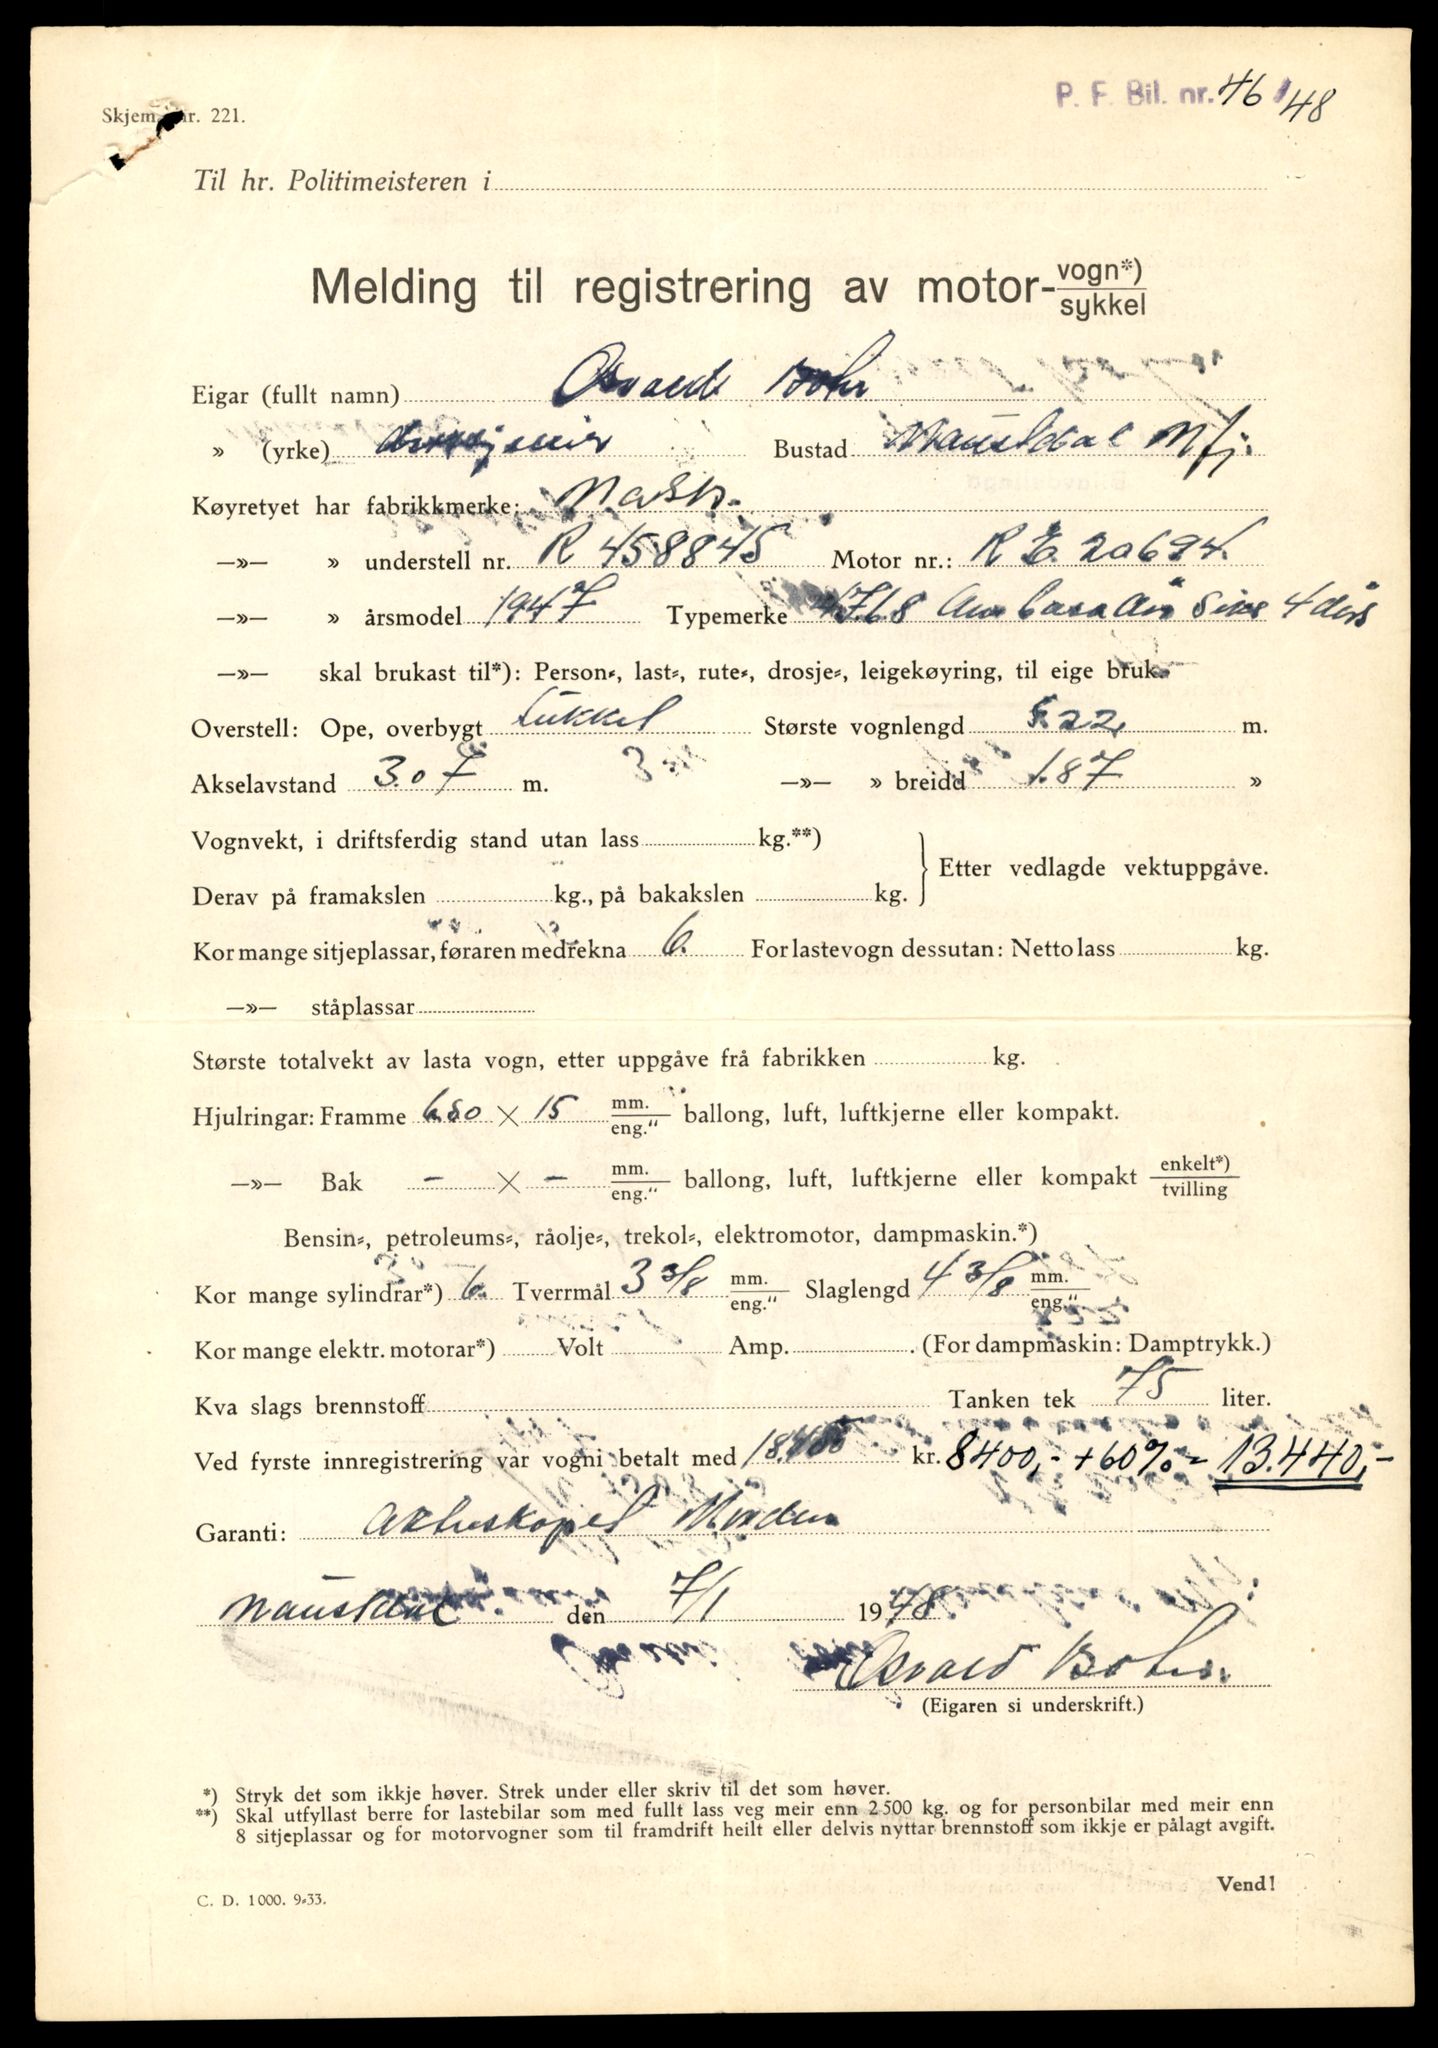 P. F. Bil. nr. 46/48
Skjema nr. 221.
Til hr. Politimeisteren i
Melding til registrering av motor- vogn*) / sykkel
Eigar (fullt namn) Osvald Bohr
» (yrke) Bustad Naustdal
Køyretyet har fabrikkmerke: Nash.
—»— » understell nr. R 458845 Motor nr.: R E. 20694.
—»— » årsmodel 1947 Typemerke 4768 Ambasadør 4 dørs
—»— skal brukast til*): Person-, last-, rute-, drosje-, leigekøyring, til eige bruk.
Overstell: Ope, overbygt Lukket Største vognlengd 5.22 m.
Akselavstand 3.07 m. —»— » breidd 1.87 »
Vognvekt, i driftsferdig stand utan lass kg.**)
Etter vedlagde vektuppgåve.
Derav på framakslen kg., på bakakslen kg.
Kor mange sitjeplassar, føraren medrekna 6. For lastevogn dessutan: Netto lass kg.
—»— ståplassar
Største totalvekt av lasta vogn, etter uppgåve frå fabrikken kg.
Hjulringar: Framme 6.50 × 15 mm. / eng." ballong, luft, luftkjerne eller kompakt.
—»— Bak — × — mm. / eng." ballong, luft, luftkjerne eller kompakt enkelt*) / tvilling
Bensin-, petroleums-, råolje-, trekol-, elektromotor, dampmaskin.*)
Kor mange sylindrar*) 6. Tverrmål 3 3/8 mm. / eng." Slaglengd 4 3/8 mm. / eng."
Kor mange elektr. motorar*) Volt Amp. . (For dampmaskin: Damptrykk.)
Kva slags brennstoff Tanken tek 75 liter.
Ved fyrste innregistrering var vogni betalt med kr. 8400,- + 60% = 13.440,-
Garanti:
Naustdal den 7/1 1948
Osvald Bohr.
(Eigaren si underskrift.)
*) Stryk det som ikkje høver. Strek under eller skriv til det som høver.
**) Skal utfyllast berre for lastebilar som med fullt lass veg meir enn 2 500 kg. og for personbilar med meir enn
8 sitjeplassar og for motorvogner som til framdrift heilt eller delvis nyttar brennstoff som ikkje er pålagt avgift.
Vend!
C. D. 1000. 9-33.